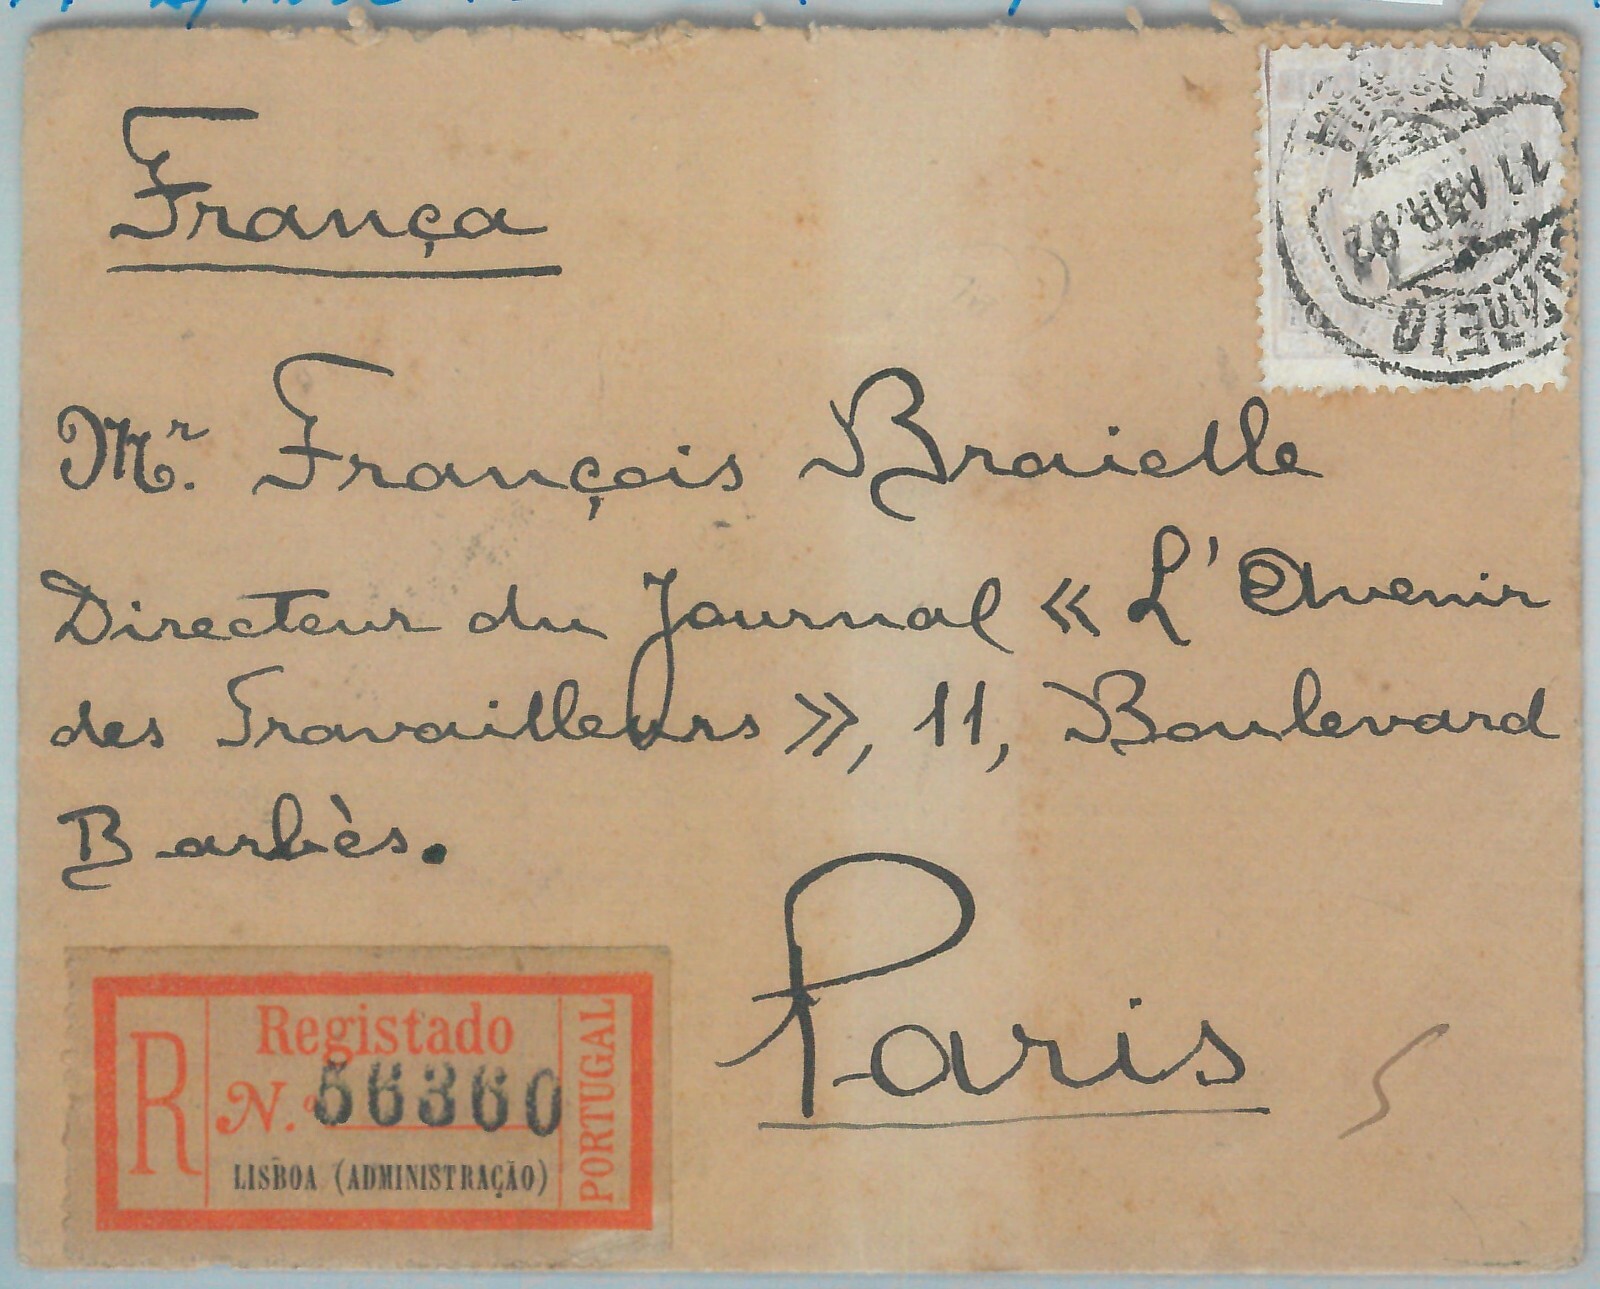 França
11 ABR. 92
Mr. François Braielle
Directeur du Journal « L'Avenir
des Travailleurs », 11, Boulevard
Barbès.
Paris
R
Registado
N.º 56360
LISBOA (ADMINISTRAÇÃO)
PORTUGAL